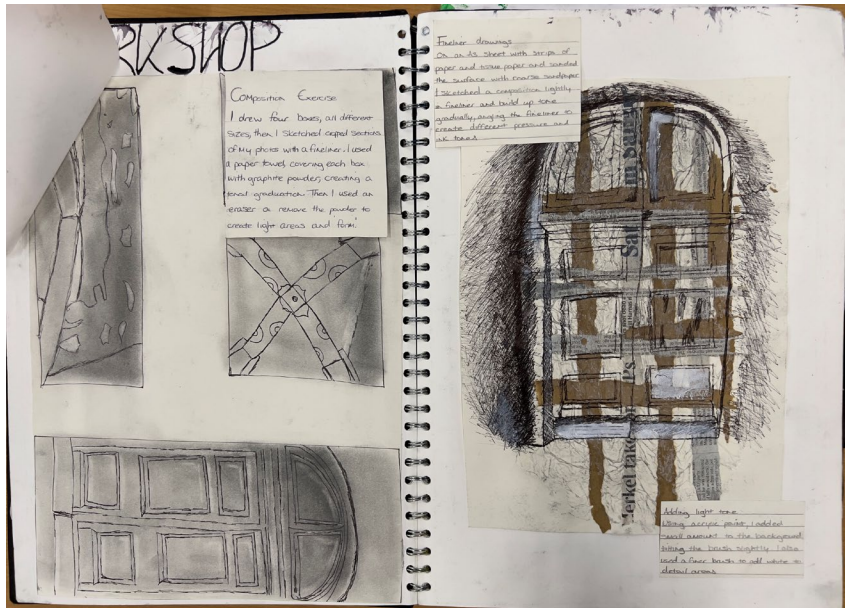 RKSHOP
Composition Exercise
I drew four boxes, all different
sizes, then I sketched cropped sections
of my photos with a fineliner. I used
a paper towel covering each box
with graphite powder, creating a
tonal graduation. Then I used an
eraser to remove the powder to
create light areas and 'form'.
Fineliner drawings
On an A5 sheet with strips of
paper and tissue paper and sanded
the surface with coarse sandpaper
I sketched a composition lightly
in fineliner and build up tone
gradually, angling the fineliner to
create different pressure and
ink tones
Merkel take
Adding light tone
Using acrylic paint, I added
small amount to the background
tilting the brush slightly. I also
used a finer brush to add white to
detail areas